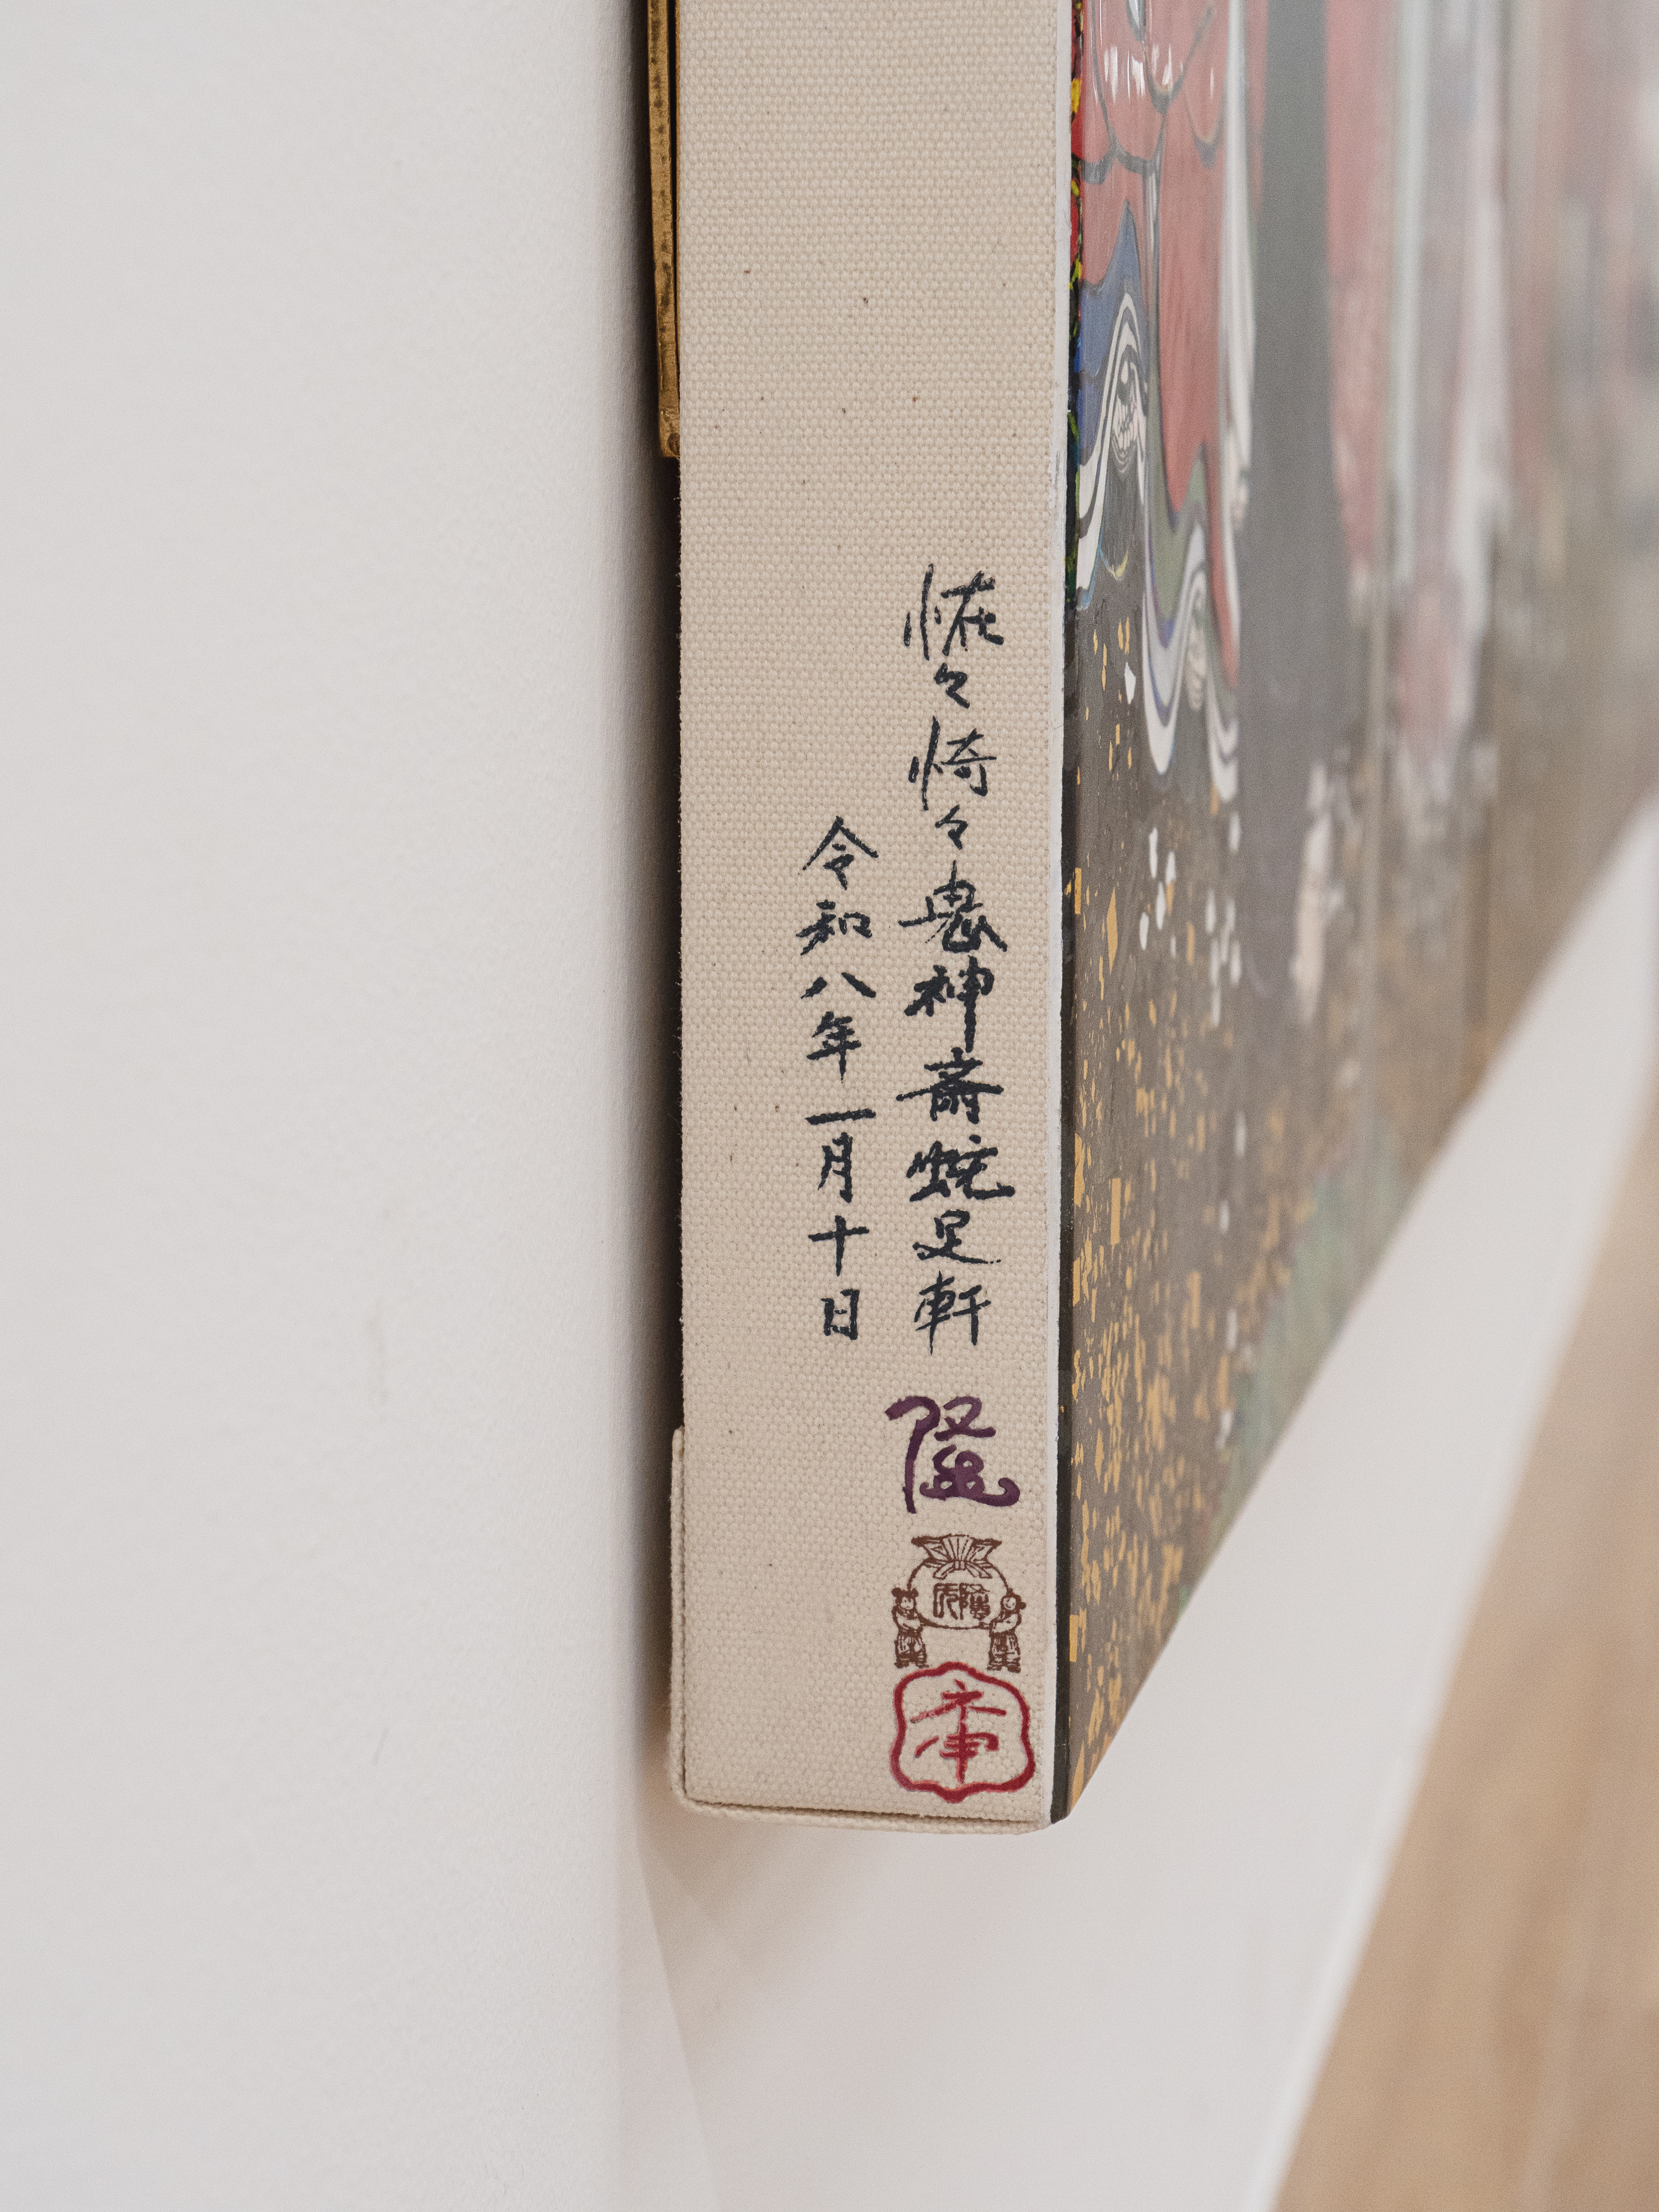 恠々愇々鬼神斎蛇足軒
令和八年一月十日
隆